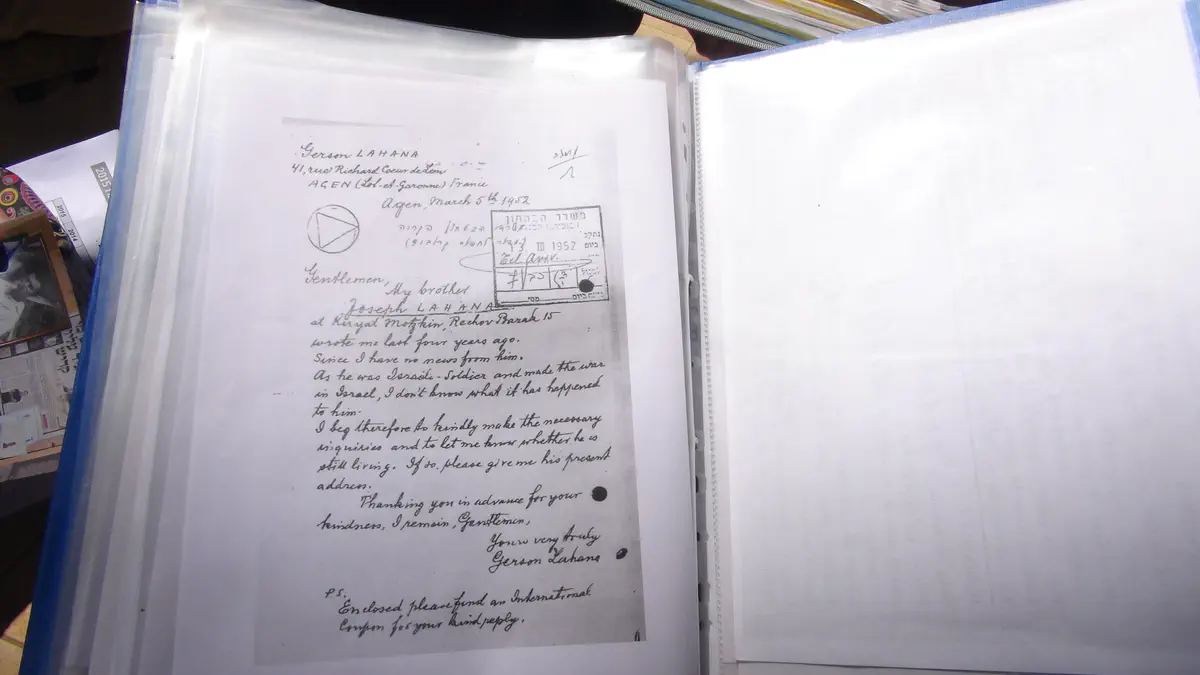 Gerson LAHANA
41, rue Richard Coeur de Lion
AGEN (Lot-et-Garonne) France
Agen, March 5th 1952
משרד הבטחון
נתקבל
ביום 13 III 1952
Tel Aviv
Gentlemen,
My brother
Joseph LAHANA
at Kiryat Motzkin, Rechov Barak 15
wrote me last four years ago.
Since I have no news from him.
As he was Israëli-Soldier and made the war
in Israel, I don't know what it has happened
to him.
I beg therefore to kindly make the necessary
inquiries and to let me know whether he is
still living. If so, please give me his present
address.
Thanking you in advance for your
kindness, I remain, Gentlemen,
Yours very truly
Gerson Lahana
P.S.
Enclosed please find an International
Coupon for your kind reply.
2015
2015
2014